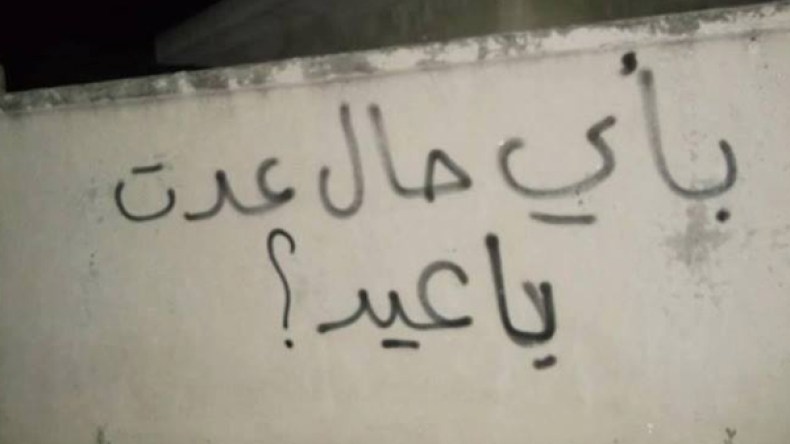 بأي حال عدت
يا عيد؟